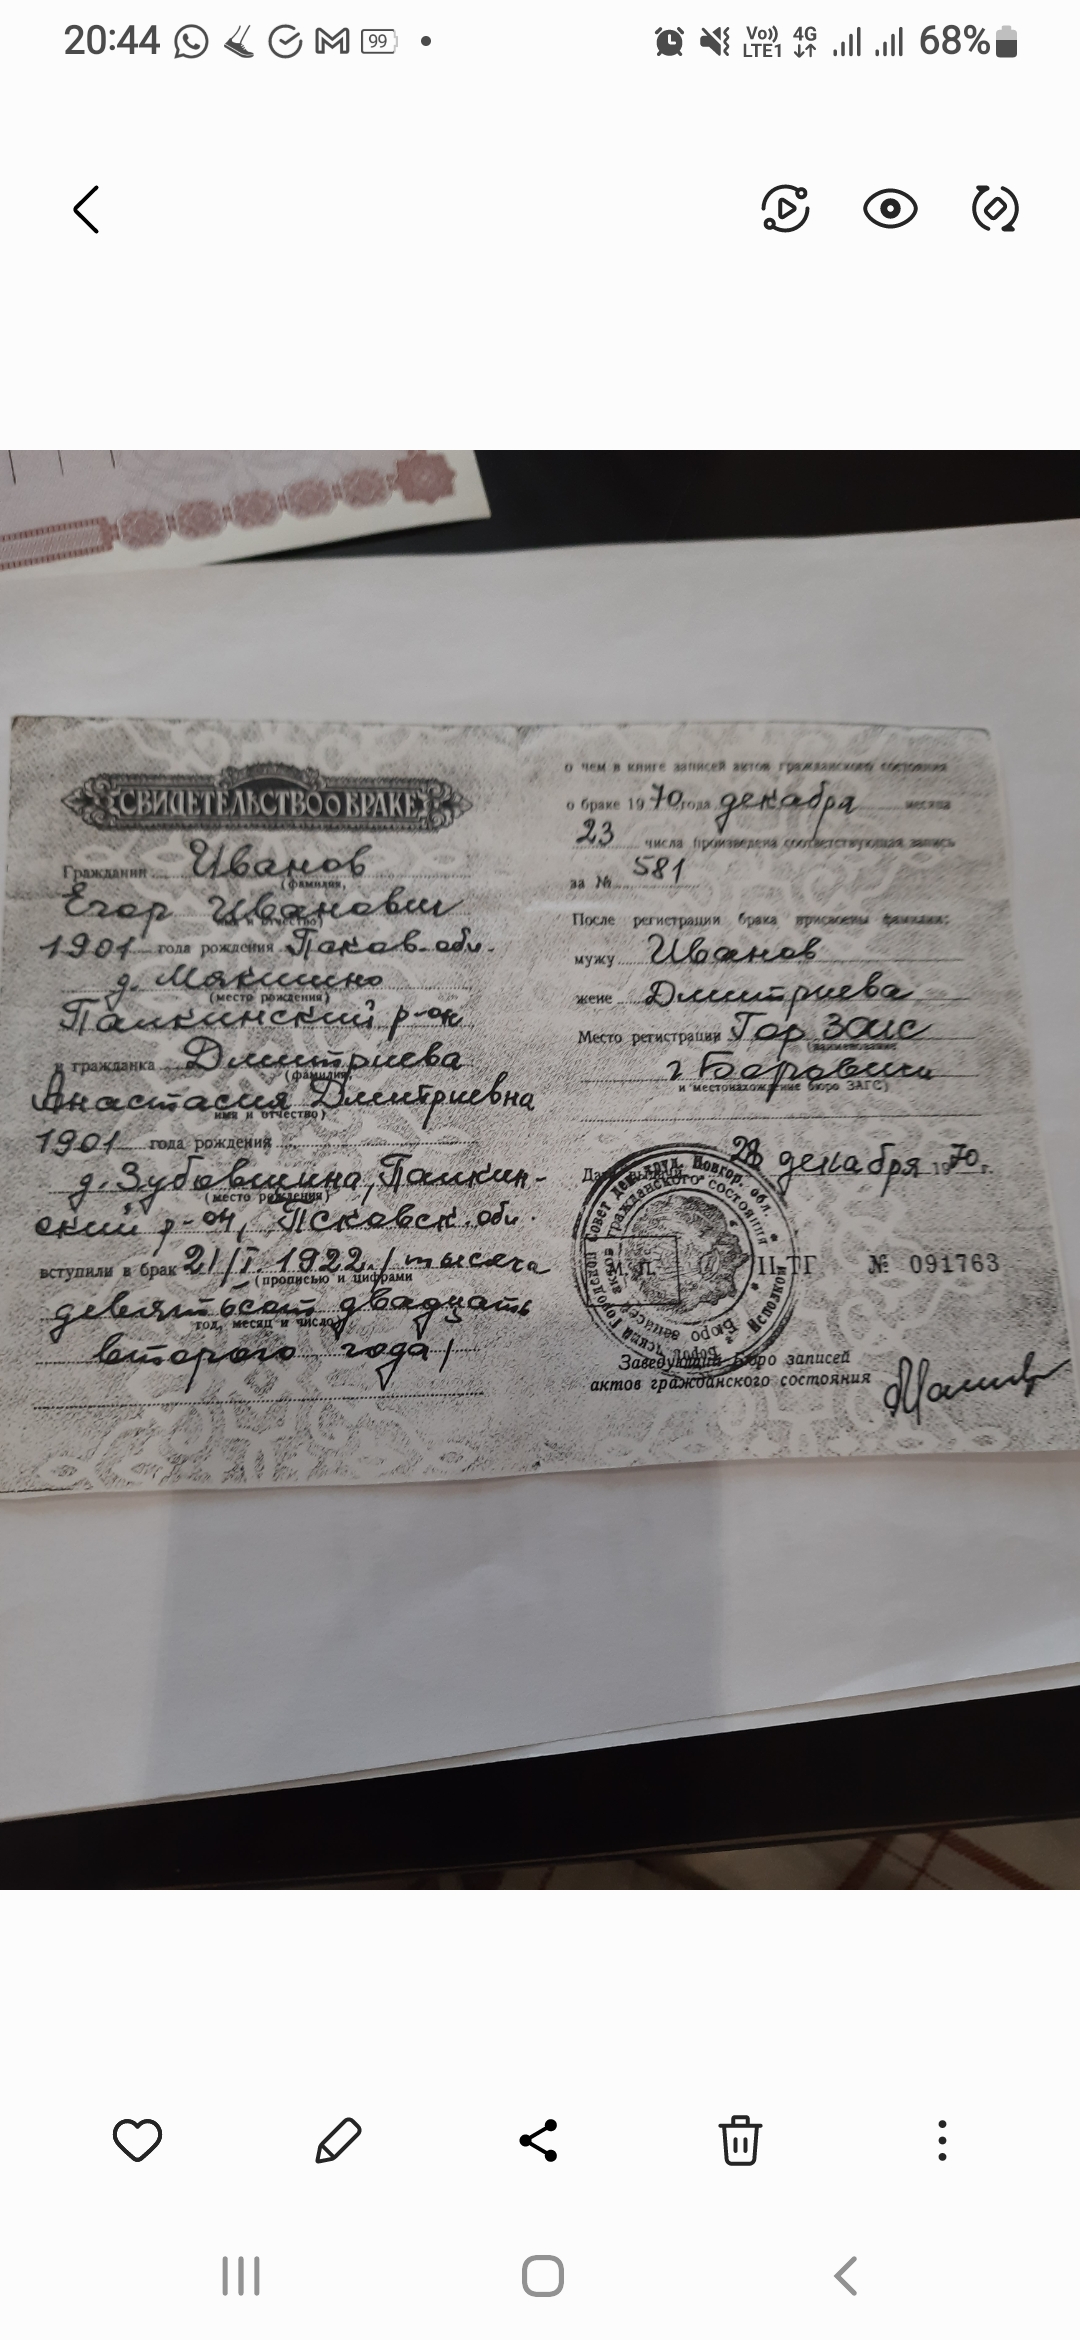 20:44
99
Vo)) LTE1 4G 68%
СВИДЕТЕЛЬСТВО О БРАКЕ
Гражданин Иванов
(фамилия,
Егор Иванович
имя и отчество)
1901 года рождения Псков. обл.
д. Мякишно
(место рождения)
Палкинский р-он
и гражданка Дмитриева
(фамилия,
Анастасия Дмитриевна
имя и отчество)
1901 года рождения
д. Зубовщина, Палкин-
(место рождения)
ский р-он, Псковск. обл.
вступили в брак 21/I. 1922. / тысяча
(прописью и цифрами
девятьсот двадцать
год, месяц и число)
второго года /
о чем в книге записей актов гражданского состояния
о браке 1970 года декабря месяца
23 числа произведена соответствующая запись
за № 581
После регистрации брака присвоены фамилии:
мужу Иванов
жене Дмитриева
Место регистрации Гор ЗАГС
(наименование
г Боровичи
и местонахождение бюро ЗАГС)
28 декабря 1970 г.
М. П.
II-ТГ № 091763
Заведующий Бюро записей
актов гражданского состояния